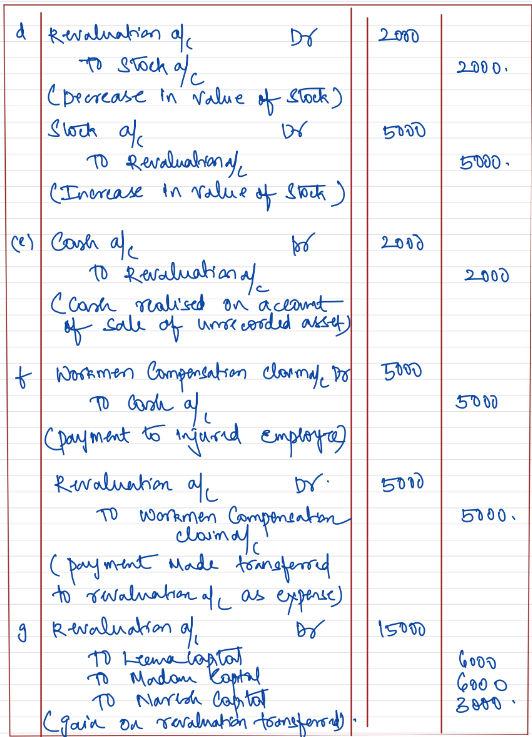 d Revaluation a/c Dr 2000
To Stock a/c 2000.
(Decrease in value of Stock)
Stock a/c Dr 5000
To Revaluation a/c 5000.
(Increase in value of Stock)
(e) Cash a/c Dr 2000
To Revaluation a/c 2000
(Cash realised on account
of sale of unrecorded asset)
f Workmen Compensation claim a/c Dr 5000
To Cash a/c 5000
(payment to injured employee)
Revaluation a/c Dr. 5000
To Workmen Compensation 5000.
claim a/c
(payment made transferred
to revaluation a/c as expense)
g Revaluation a/c Dr 15000
To Leema Capital 6000
To Madan Capital 6000
To Naresh Capital 3000.
(gain on revaluation transferred).